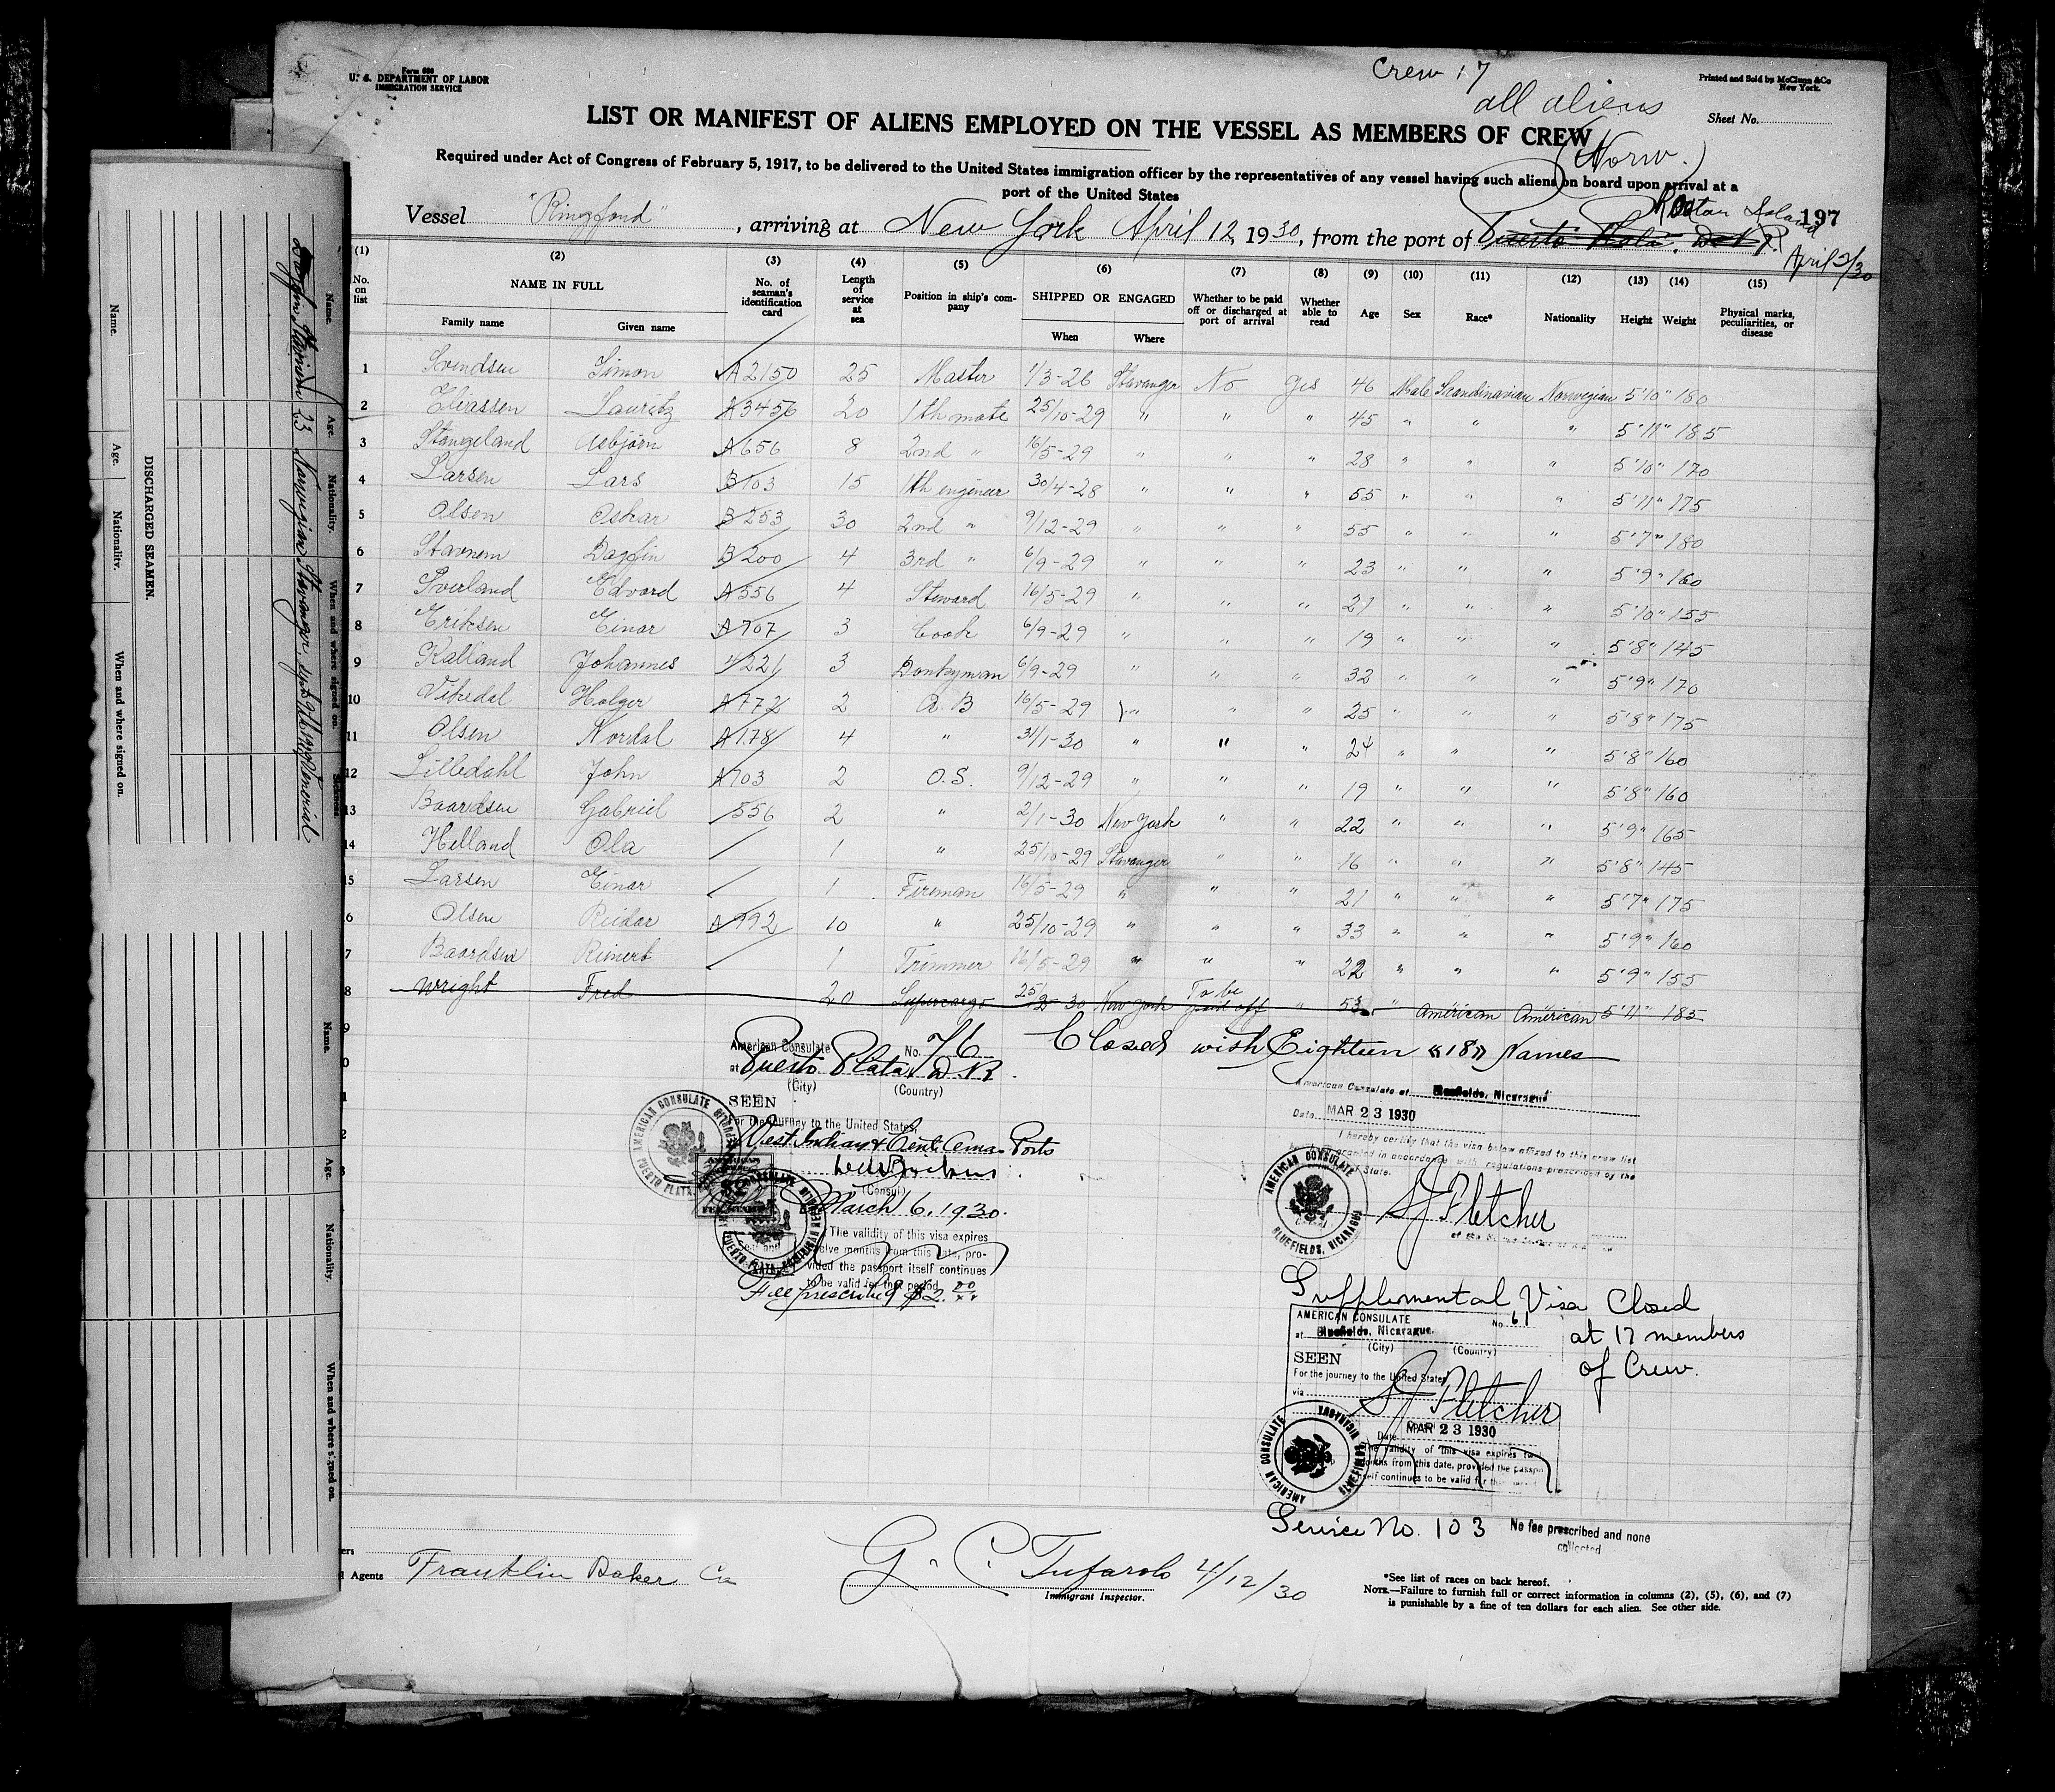 Form 689
U. S. DEPARTMENT OF LABOR
IMMIGRATION SERVICE
Crew 17
all aliens
(Norw.)
Printed and Sold by McClunn & Co
New York.
Sheet No.
LIST OR MANIFEST OF ALIENS EMPLOYED ON THE VESSEL AS MEMBERS OF CREW
Required under Act of Congress of February 5, 1917, to be delivered to the United States immigration officer by the representatives of any vessel having such aliens on board upon arrival at a
port of the United States
Roatan Island 197
Vessel "Ringfond", arriving at New York April 12, 1930, from the port of Puerto Plata, D.R.
April 5/30
(1) (2) (3) (4) (5) (6) (7) (8) (9) (10) (11) (12) (13) (14) (15)
No. on list NAME IN FULL Family name Given name No. of seaman's identification card Length of service at sea Position in ship's company SHIPPED OR ENGAGED When Where Whether to be paid off or discharged at port of arrival Whether able to read Age Sex Race* Nationality Height Weight Physical marks, peculiarities, or disease
1 Svendsen Simon A2150 25 Master 1/3-26 Stavanger No yes 46 Male Scandinavian Norwegian 5'10" 180
2 Eliassen Lauritz A3456 20 1th mate 25/10-29 " " " 45 " " " 5'11" 185
3 Stangeland Asbjørn A656 8 2nd " 16/5-29 " " " 28 " " " 5'10" 170
4 Larsen Lars B103 15 1th engineer 30/4-28 " " " 55 " " " 5'11" 175
5 Olsen Oskar B253 30 2nd " 9/12-29 " " " 55 " " " 5'7" 180
6 Stavnem Dagfin B200 4 3rd " 6/9-29 " " " 23 " " " 5'9" 160
7 Sverland Edvard A556 4 Steward 16/5-29 " " " 21 " " " 5'10" 155
8 Eriksen Einar A707 3 Cook 6/9-29 " " " 19 " " " 5'8" 145
9 Kalland Johannes 221 3 Donkyman 6/9-29 " " " 32 " " " 5'9" 170
10 Vikedal Holger A772 2 A.B 16/5-29 " " " 25 " " " 5'8" 175
11 Olsen Nordal A178 4 " 31/1-30 " " " 24 " " " 5'8" 160
12 Lilledahl John A703 2 O.S. 9/12-29 " " " 19 " " " 5'8" 160
13 Baardsen Gabriel 556 2 " 2/1-30 New York " " 22 " " " 5'9" 165
14 Helland Ola 1 " 25/10-29 Stavanger " " 16 " " " 5'8" 145
5 Larsen Einar 1 Fireman 16/5-29 " " " 21 " " " 5'7" 175
6 Olsen Reidar A992 10 " 25/10-29 " " " 33 " " " 5'9" 160
7 Baardsen Reinert 1 Trimmer 16/5-29 " " " 22 " " " 5'9" 155
8 Wright Fred 20 Supercargo 25/2 30 New York To be paid off " 53 " American American 5'11" 185
9
0
1
2
3
Closed with Eighteen "18" Names
American Consulate No. 76
at Puerto Plata, D.R.
(City) (Country)
SEEN
For the journey to the United States,
West Indian & Cent. Amer. Ports
(Consul)
March 6, 1930.
The validity of this visa expires
twelve months from this date, pro-
vided the passport itself continues
to be valid for that period.
Fee prescribed $2.00
AMERICAN CONSULATE PUERTO PLATA
American Consulate at Bluefields, Nicaragua
Date MAR 23 1930
I hereby certify that the visa below affixed to this crew list
granted in accordance with regulations prescribed by the
of State.
S J Fletcher
AMERICAN CONSULATE
BLUEFIELDS, NICARAGUA
Supplemental Visa Closed
at 17 members
of Crew.
AMERICAN CONSULATE No. 61
at Bluefields, Nicaragua.
(City) (Country)
SEEN
For the journey to the United States
via
S J Fletcher
Date MAR 23 1930
The validity of this visa expires
months from this date, provided the passport
itself continues to be valid for
AMERICAN CONSULATE BLUEFIELDS NICARAGUA
Service No. 103 No fee prescribed and none
collected
Agents Franklin Baker Co
G. C. Tufarolo 4/12/30
Immigrant Inspector.
*See list of races on back hereof.
NOTE.—Failure to furnish full or correct information in columns (2), (5), (6), and (7)
is punishable by a fine of ten dollars for each alien. See other side.
DISCHARGED SEAMEN.
Name. Age. Nationality. When and where signed on.
Name. Age. Nationality. When and where signed on. Sickness
Dagfin Stavnem 23 Norwegian Stavanger, Sept 9th
Name. Age. Nationality. When and where signed on.